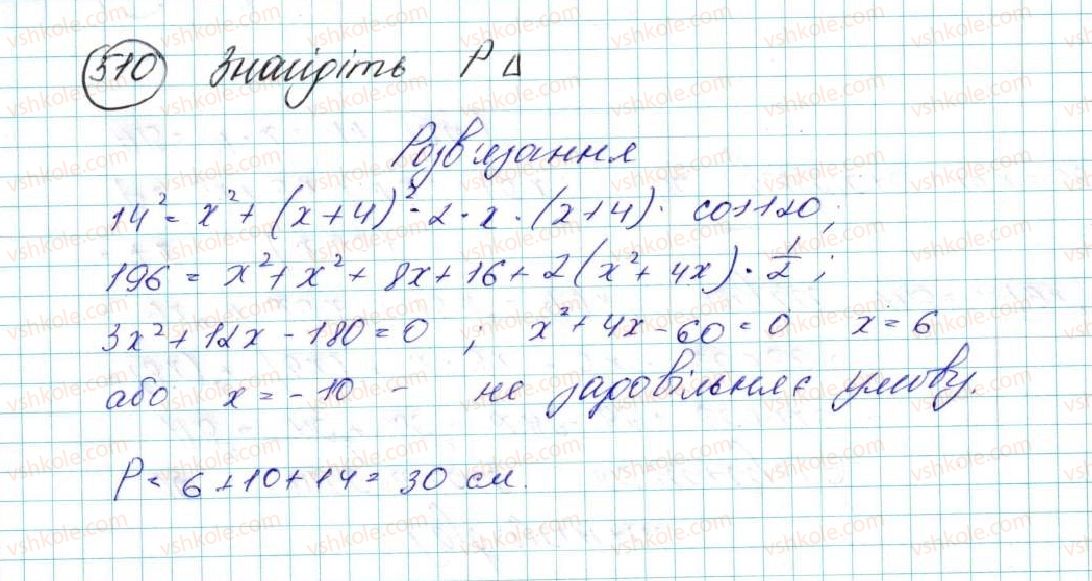 570 Знайдіть P Δ
Розв'язання
14² = x² + (x+4)² - 2 · x · (x+4) · cos120;
196 = x² + x² + 8x + 16 + 2(x² + 4x) · 1/2;
3x² + 12x - 180 = 0 ; x² + 4x - 60 = 0 x = 6
або x = -10 - не задовільняє умову.
P = 6 + 10 + 14 = 30 см.